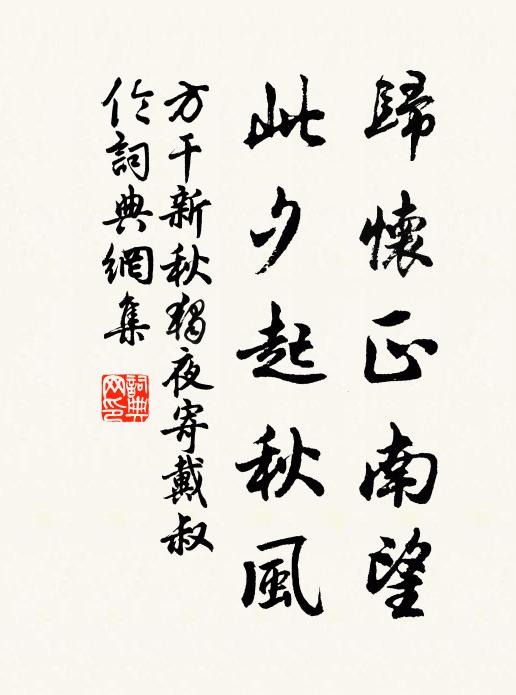 歸懷正南望
此夕起秋風
方干新秋獨夜寄戴叔
伦詞典網集
詞典網印